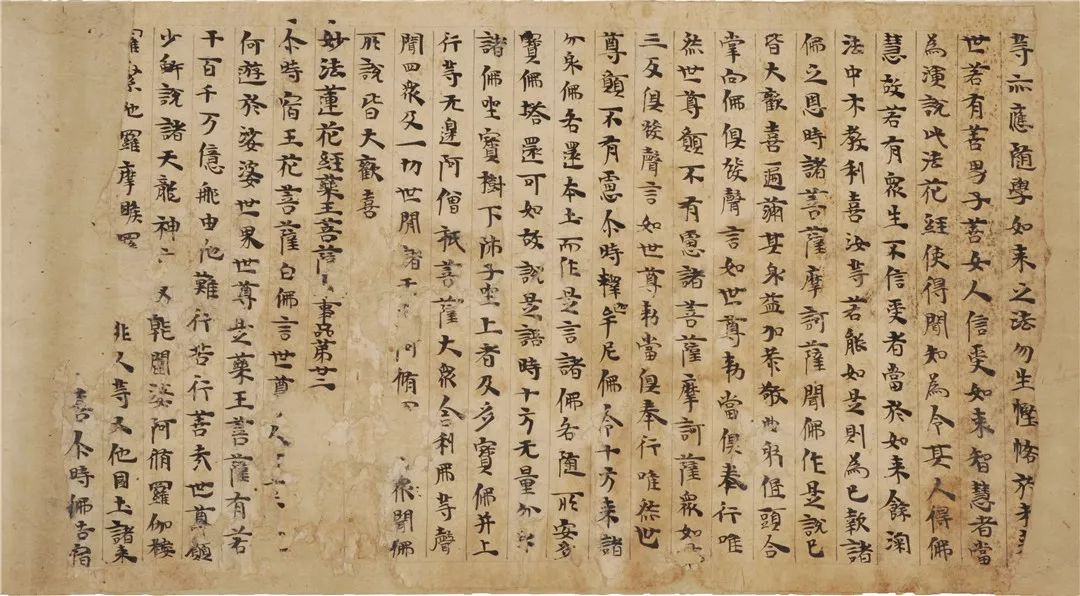 等亦應随學如来之法勿生慳悋於未
世若有善男子善女人信受如来智慧者當
為演說此法花經使得聞知為令其人得佛
慧故若有衆生不信受者當於如来餘深
法中示教利喜汝等若能如是則為已報諸
佛之恩時諸菩薩摩訶薩聞佛作是說已
皆大歡喜遍滿其身益加恭敬曲躬低頭合
掌向佛俱發聲言如世尊勑當俱奉行唯
然世尊願不有慮諸菩薩摩訶薩衆如
三反俱發聲言如世尊勑當俱奉行唯然世
尊願不有慮尒時釋迦牟尼佛令十方来諸
分身佛各還本土而作是言諸佛各随所安多
寶佛塔還可如故說是語時十方无量分身
諸佛坐寶樹下師子坐上者及多寶佛并上
行等无邊阿僧祇菩薩大衆舍利弗等聲
聞四衆及一切世間諸天阿脩衆聞佛
所說皆大歡喜
妙法蓮花經藥王菩薩事品第廿二
尒時宿王花菩薩白佛言世尊
何遊於娑婆世界世尊是藥王菩薩有若
干百千万億那由他難行苦行善哉世尊願
少解說諸天龍神又乾闥婆阿脩羅伽樓
羅緊他羅摩睺羅非人等又他國土諸来
喜尒時佛告宿